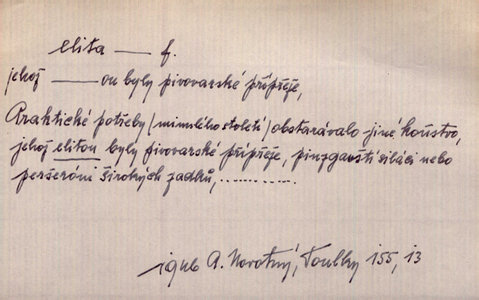 elita — f.
jehož — ou byly pivovarské přípřeže,
Praktické potřeby (minulého století) obstarávalo jiné koňstvo,
jehož elitou byly pivovarské přípřeže, pinzgavští siláci nebo
peršeróni širokých zadků, ...........
A. Novotný, Toulky 155, 13